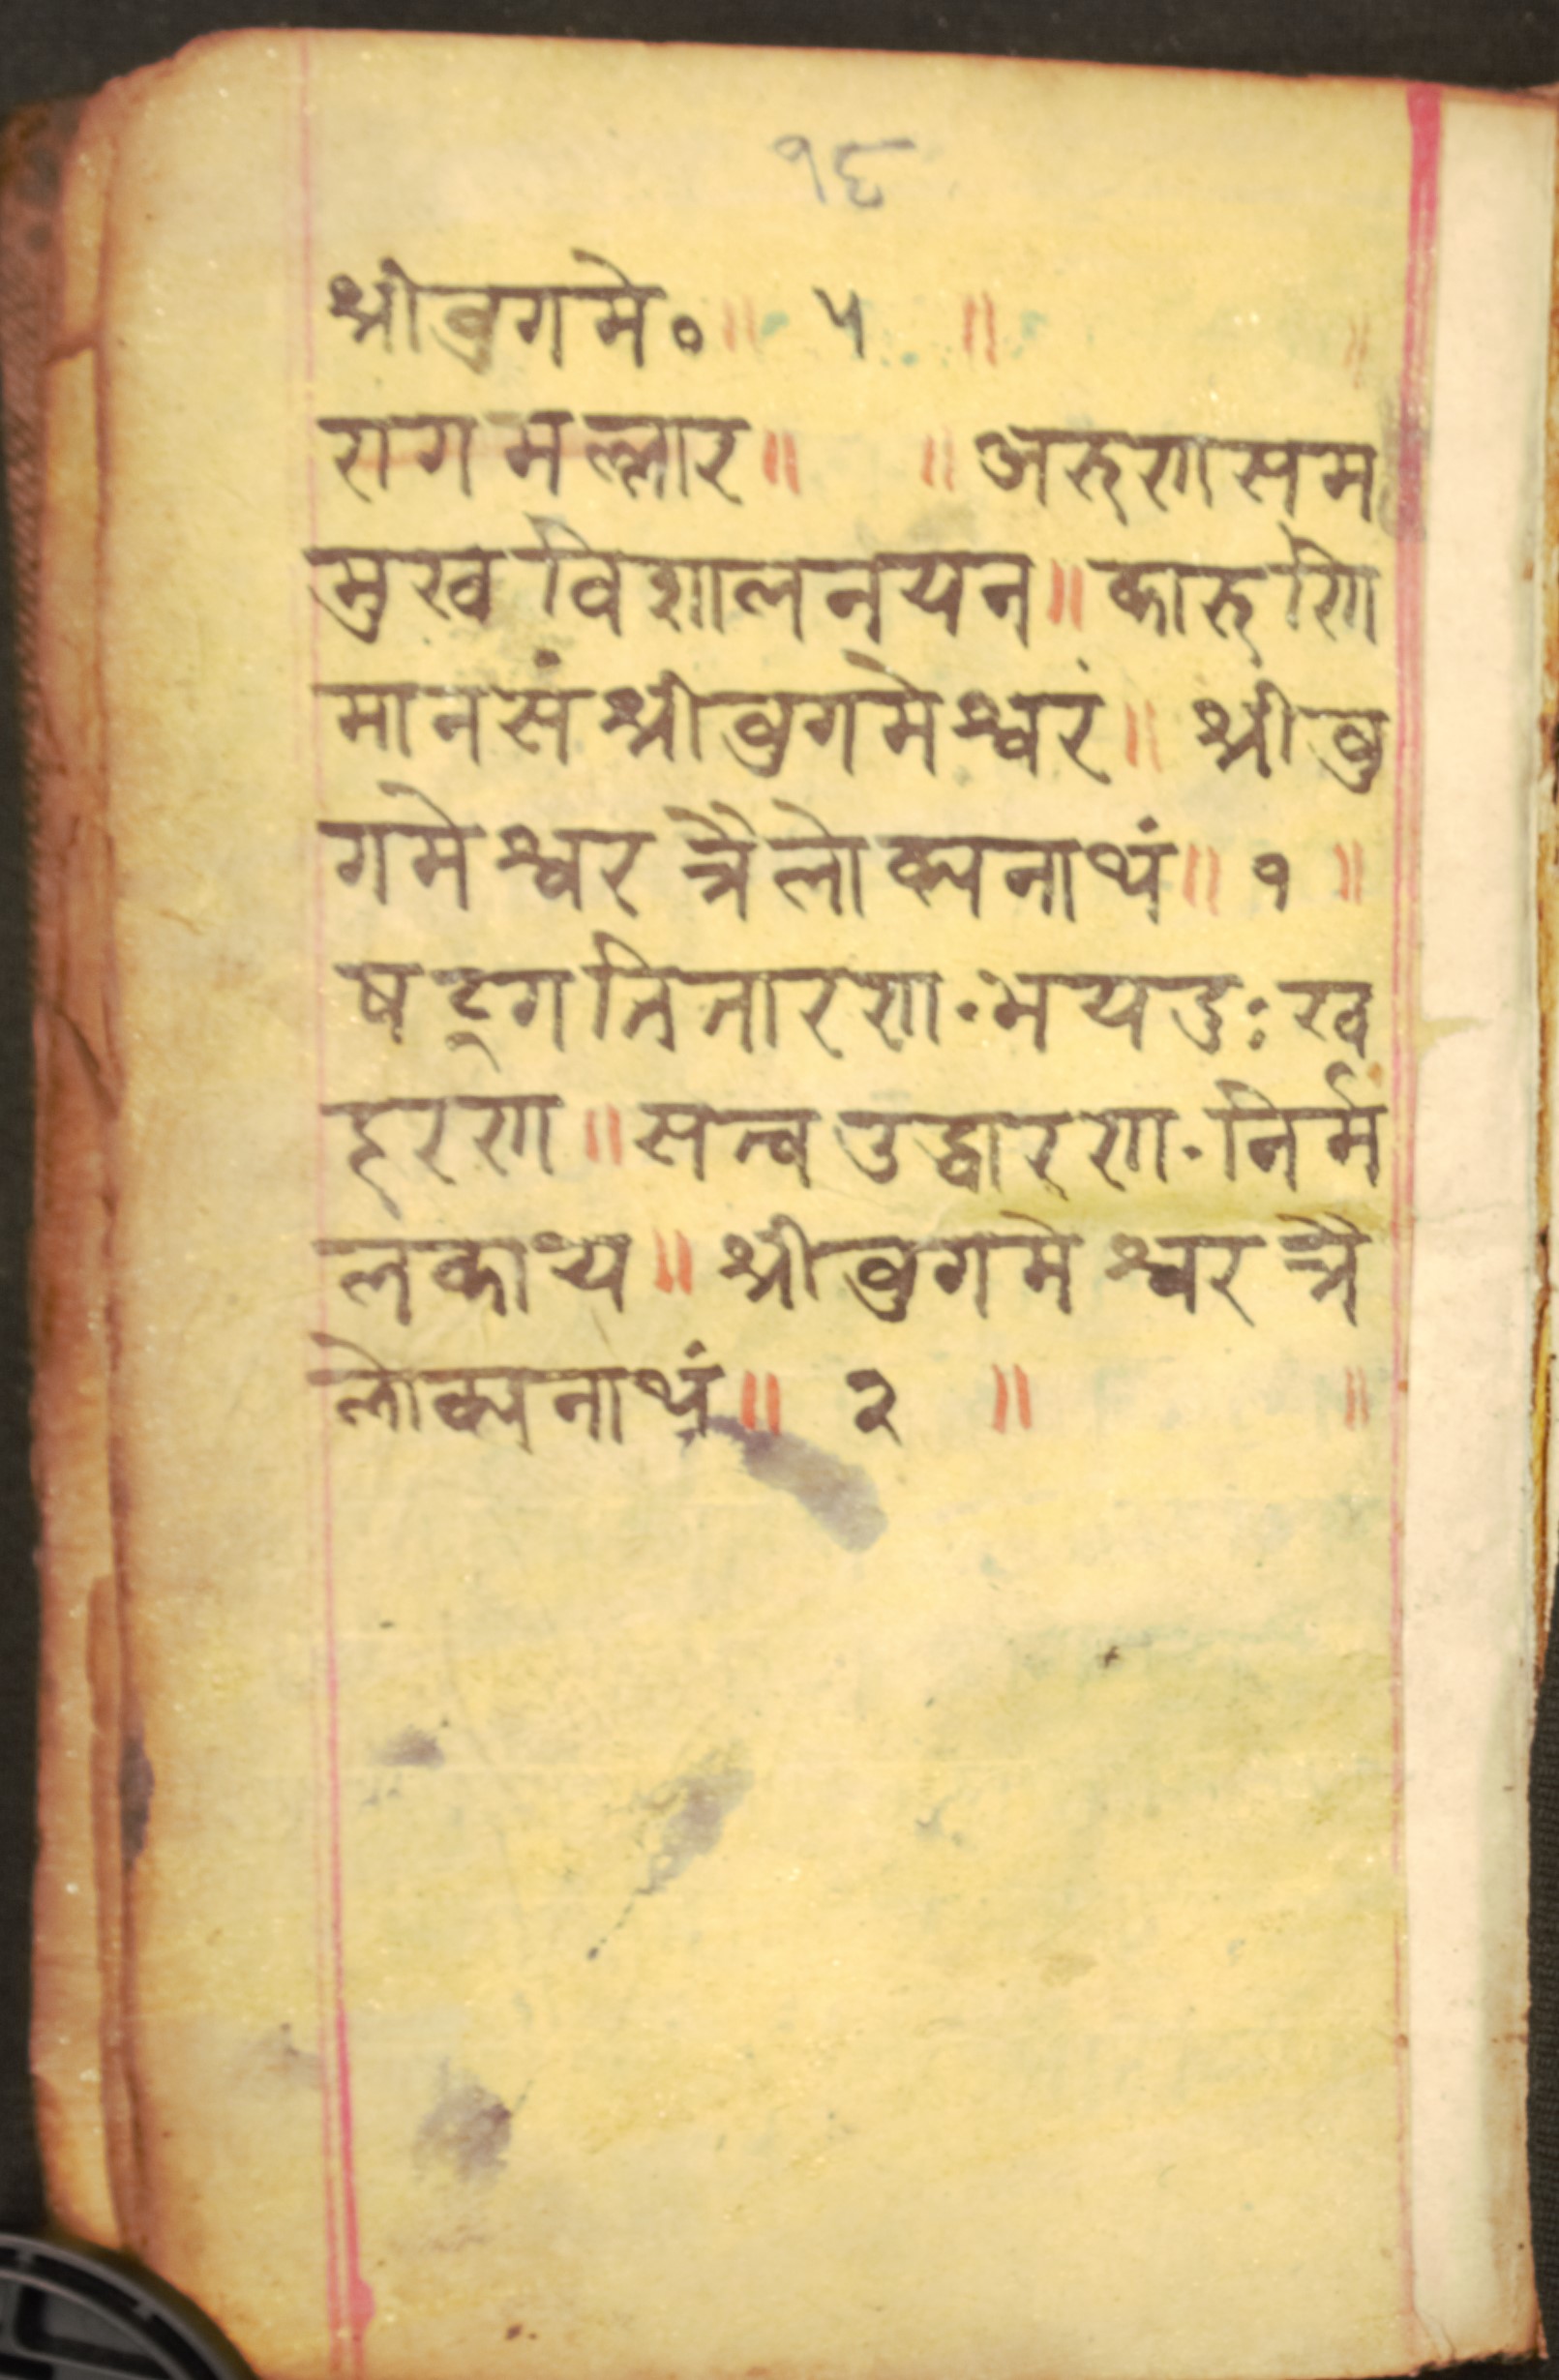 १६
श्रीवुगमे० ॥ ५ ॥ ॥
रागमल्लार ॥ ॥ अरुणसम
मुखविशालनयन ॥ कारुणि
मानसंश्रीवुगमेश्वरं ॥ श्रीवु
गमेश्वरत्रैलोक्यनाथं ॥ १ ॥
षट्गतितारण·भयदुःख
हरण ॥ सत्वउद्धारण·निर्म
लकाय ॥ श्रीवुगमेश्वरत्रै
लोक्यनाथं ॥ २ ॥ ॥